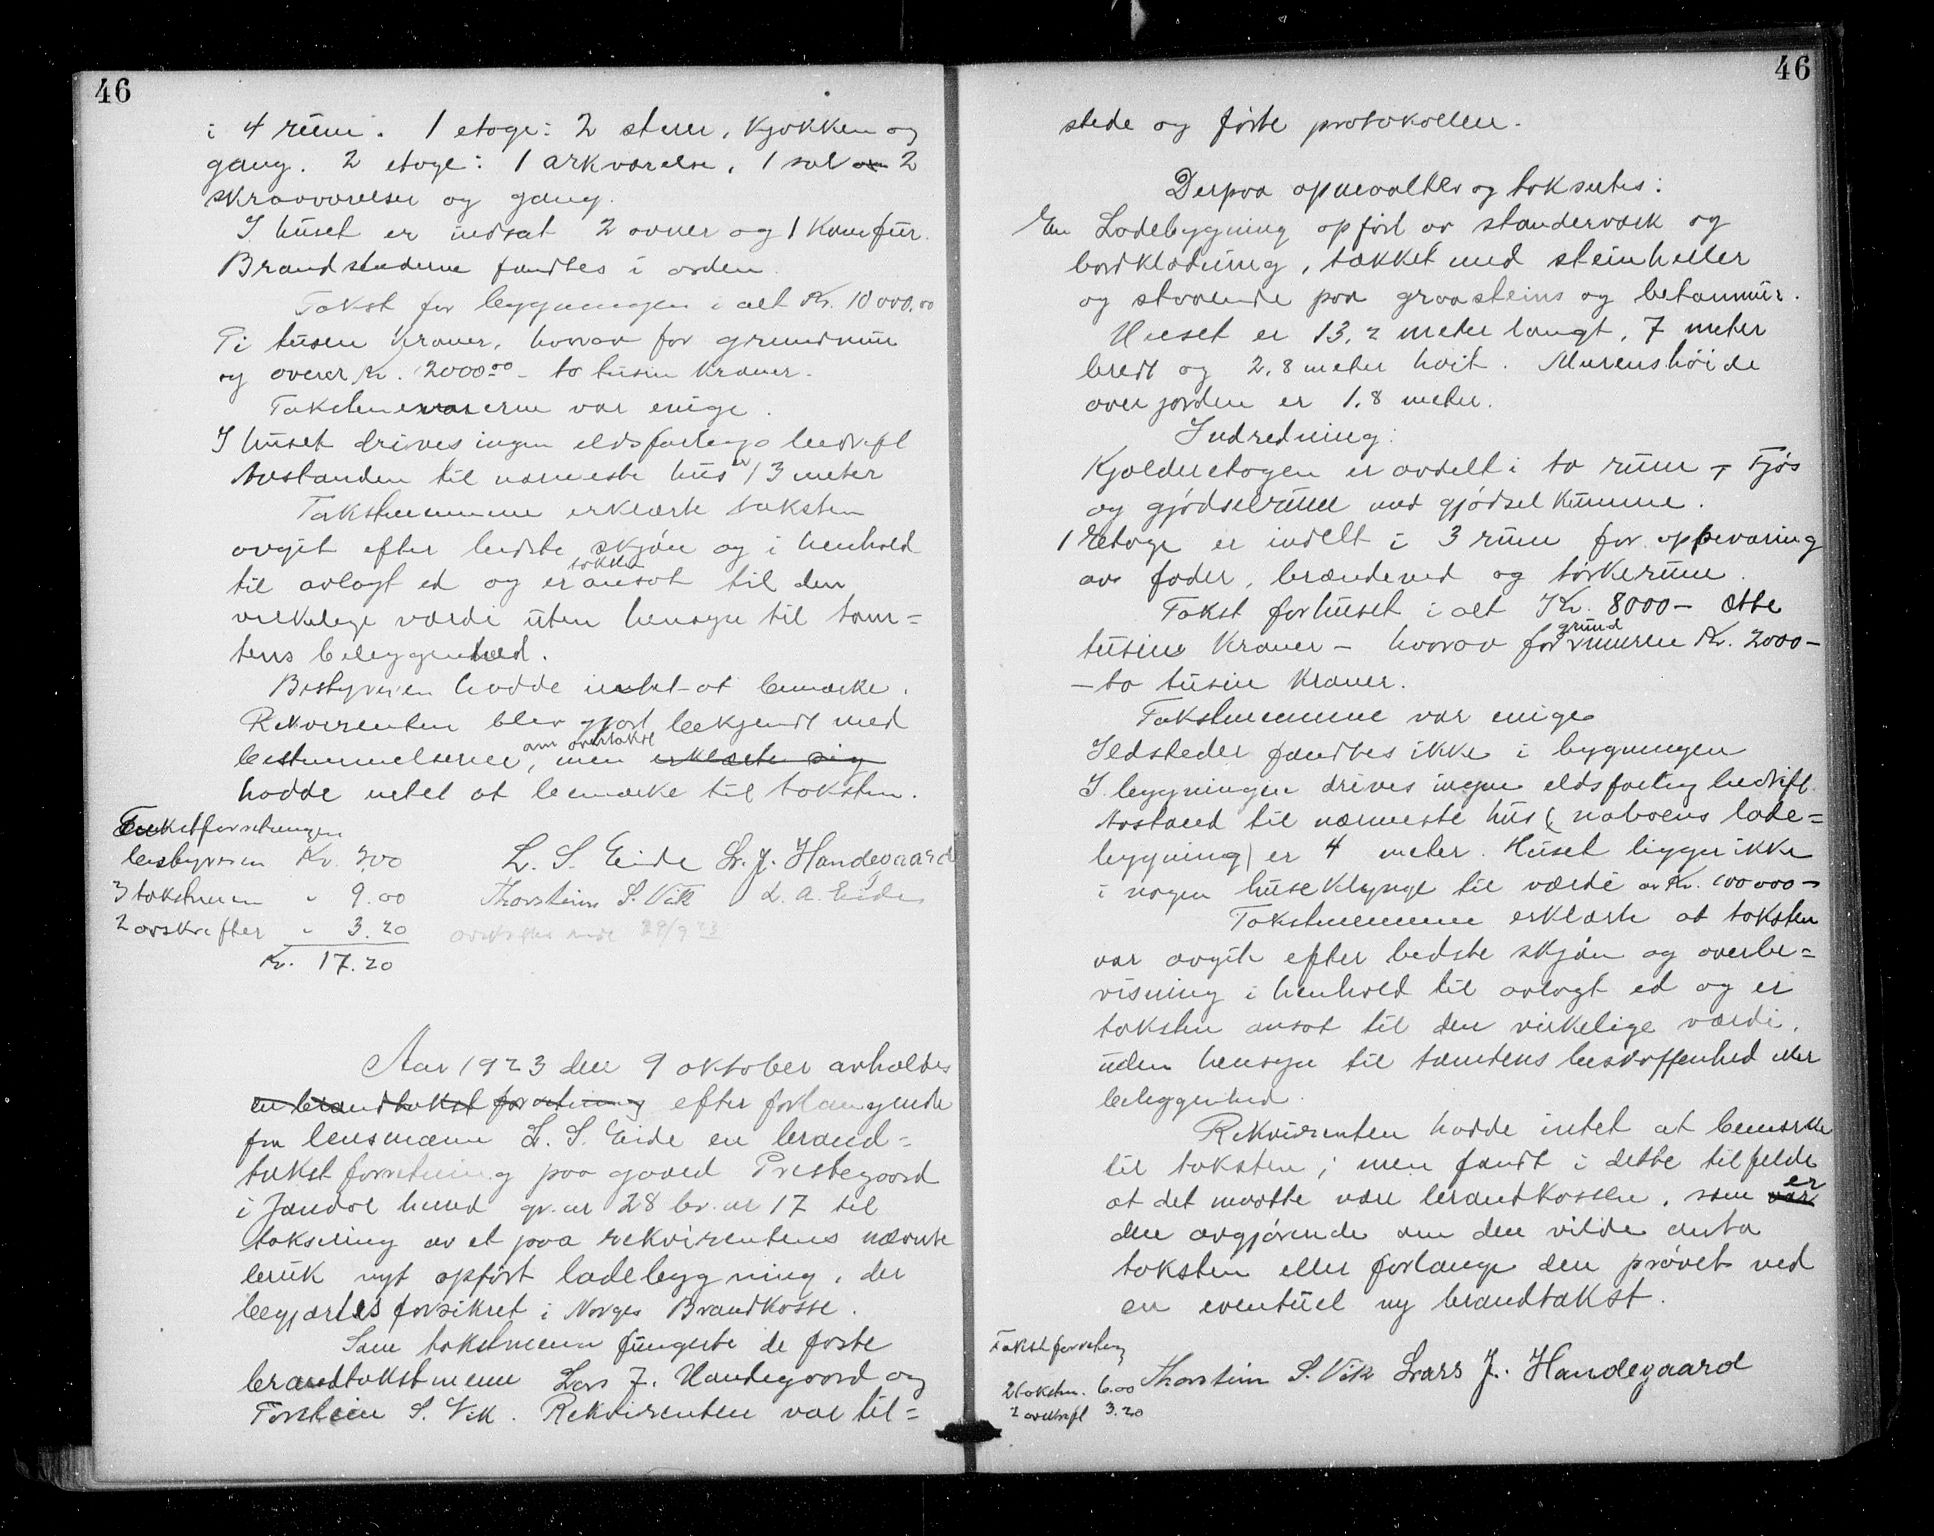 46
i 4 rum. 1 etage: 2 stuer, kjøkken og
gang. 2 etage: 1 arkværelse, 1 sal 2
skraaværelser og gang.
I huset er indsat 2 ovner og 1 Komfur.
Brandstederne fandtes i orden.
Takst for bygningen i alt Kr. 10000.00
Ti tusen kroner, hvorav for grundmur
og overer Kr. 2000.00 - to tusin kroner.
Takstmennerne var enige.
I huset drives ingen eldsfarlige bedrift
Avstanden til nærmeste hus er 13 meter
Takstmennene erklærte taksten
avgit efter bedste skjøn og i henhold
til avlagt ed og er taksten ansat til den
virkelige værdi uten hensyn til tom=
tens beliggenhed.
Bestyreren hadde intet at bemærke.
Rekvirenten blev gjort bekjendt med
bestemmelserne om overtakst, men erklærte sig
hadde intet at bemærke til taksten.
Takstforretningen
bestyreren Kr. 5.00
3 takstmenn " 9.00
2 avskrifter " 3.20
Kr. 17.20
L. S. Eide L. J. Handegaard
Thorstein S. Vik L. A. Eide
avskrifter sendt 29/9 23
Aar 1923 den 9 oktober avholdes
en brandtakst forretning efter forlangende
fra lensmann L. S. Eide en brand=
takst forretning paa gaard Prestegaard
i Jondal herred gr. nr 28 br. nr 17 til
taksering av et paa rekvirentens nævnte
bruk nyt opført ladebygning, der
begjæres forsikret i Norges Brandkasse.
Som takstmenn fungerte de faste
brandtakstmenn Lars J. Handegaard og
Torstein S. Vik. Rekvirenten var til=
46
stede og førte protokollen.
Derpaa opmaaltes og taksertes:
En Ladebygning opført av standerværk og
bordklædning, tækket med steinheller
og staaende paa graasteins og betonmur.
Huset er 13,2 meter langt, 7 meter
bredt og 2,8 meter høit. Murens høide
over jorden er 1,8 meter.
Indredning:
Kjælderetagen er avdelt i to rum - Fjøs
og gjødselrum med gjødselkumme.
1 Etage er indelt i 3 rum for opbevaring
av foder, brændeved og tørkerum.
Takst for huset i alt Kr. 8000 - otte
tusine kroner - hvorav for grundmuren Kr. 2000 -
- to tusin kroner.
Takstmennene var enige
Ildsteder fandtes ikke i bygningen
I bygningen drives ingen eldsfarlig bedrift.
Avstand til nærmeste hus (naboens lade=
bygning) er 4 meter. Huset ligger ikke
i nogen huseklynge til værdi av Kr. 100 000 -
Takstmennene erklærte at taksten
var avgit efter bedste skjøn og overbe=
visning i henhold til avlagt ed og er
taksten ansat til den virkelige værdi,
uden hensyn til tomtens beskaffenhed eller
beliggenhed.
Rekvirenten hadde intet at bemærke
til taksten; men fandt i dette tilfelde
at det maatte være brandkassen, som var er
den avgjørende om den vilde anta
taksten eller forlange den prøvet ved
en eventuel ny brandtakst.
Takstforretning
2 takstm. 6.00
2 avskrift 3.20
Thorstein S. Vik Lars J. Handegaard